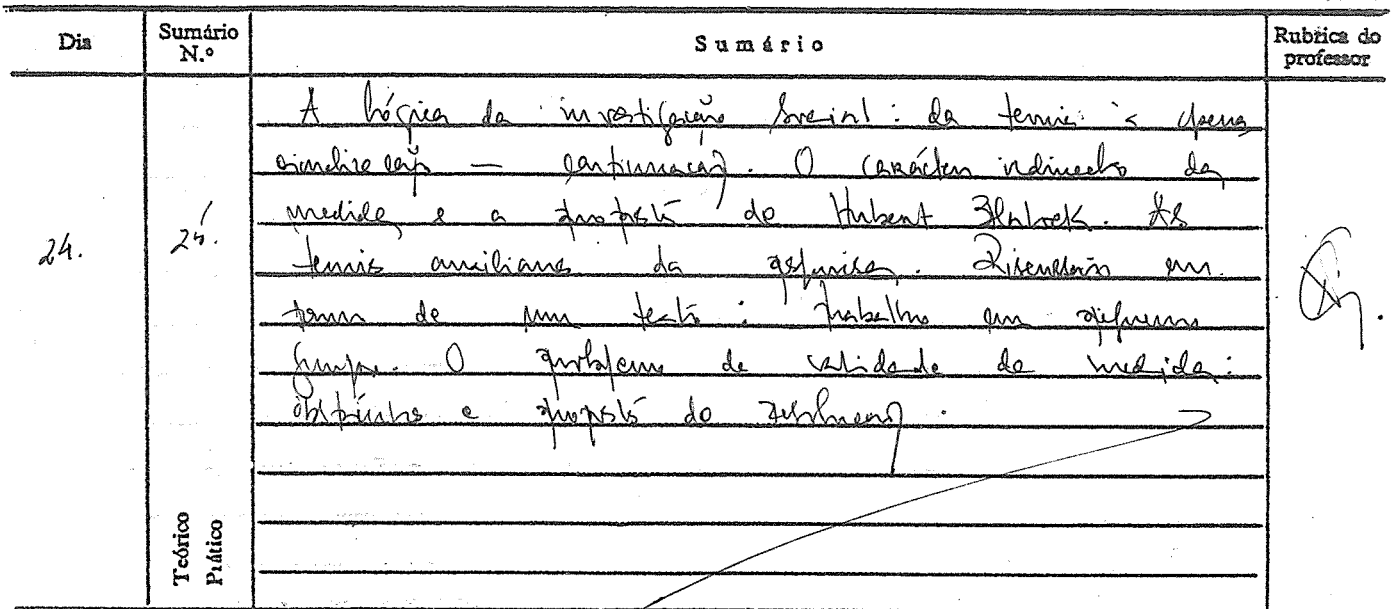 Dia
Sumário N.º
Sumário
Rubrica do professor
24.
25.
A lógica da investigação social: da teoria à opera
cionalização — continuação. O carácter indirecto da
medida e a proposta de Hubert Blalock. As
teorias auxiliares da pesquisa. Discussão em
torno de um texto: trabalho em pequenos
grupos. O problema da validade da medida:
obstáculos e proposta de resolução.
Teórico
Prático